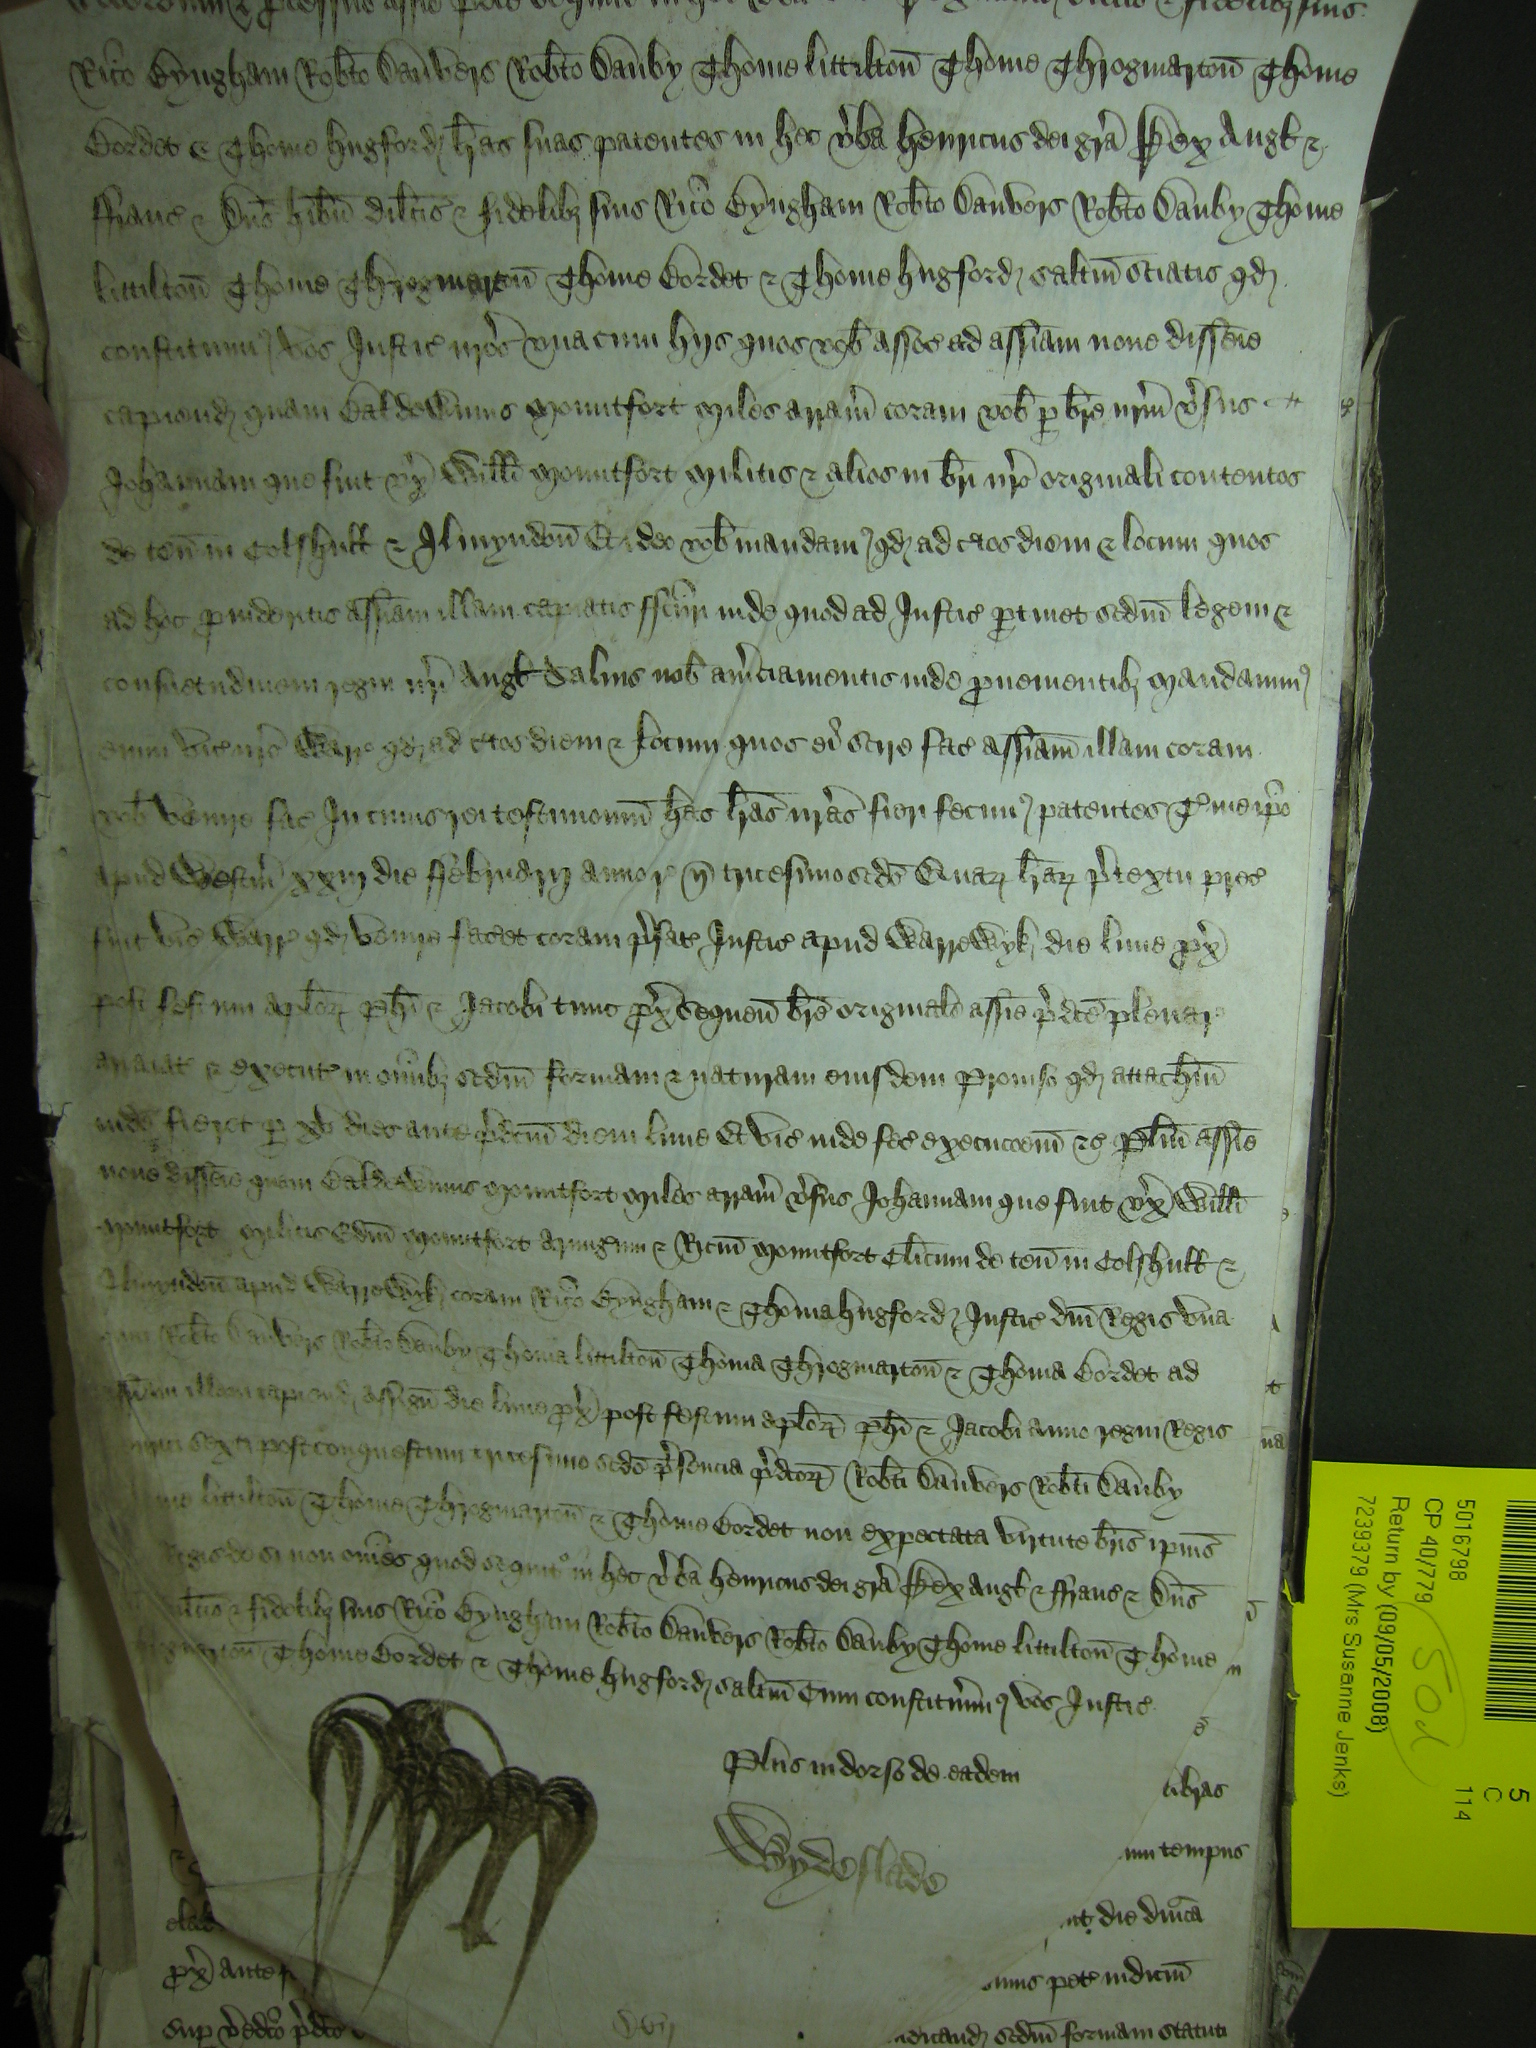 Rico Byngham Robto Danvers Robto Danby Thome littilton Thome Throgmarton Thome
Bordet & Thome hugford lras suas patentes in hec vba henricus dei gra Rex Angl &
ffranc & Dns hibn dilcis & fidelibz suis Rico Byngham Robto Danvers Robto Danby Thome
littilton Thome Throgmarton Thome Bordet & Thome hugford saltm Sciatis qd
constituim vos Justic nros vnacum hijs quos vob assoc ad assiam noue disseie
capiend quam Baldewinus Mountfort Miles arram coram vob p bre nrm vsus
Johannam que fuit vx Willi Mountfort Militis & alios in bri nro originali contentos
de ten in Colshull & Ilmyndon Et ideo vob mandam qd ad ctos diem & locum quos
ad hoc prouideritis assiam illam capiatis fcuri inde quod ad Justic ptinet scdm legem &
consuetudinem regni nri Angl Saluis nob amciamentis inde prouenientibz Mandauim
enim vic nro Warr qd ad ctos diem & locum quos ei scire fac assiam illam coram
vob venire fac In cuius rei testimonium has lras nras fieri fecim patentes T me ipo
apud Westm xxiij die ffebruarij anno r n tricesimo scdo Quar lrar ptextu prec
fuit vic Warr qd venire faceret coram pfat Justic apud Warrewyk die lune prox
post festum aplor phi & Jacobi tunc prox sequen bre originale assie pdce plenar
araiat & execut in omibz scdm formam & naturam eiusdem Prouiso qd attachiam
inde fieret p xv dies ante pdcm diem lune Et vic inde fec execucoem &c Plita assie
noue disseie quam Baldewinus Mountfort Miles arram vsus Johannam que fuit vx Willi
Mountfort Militis Edm Mountfort Armigum & Ricm Mountfort Clicum de ten in Colshull &
Ilmyndon apud Warrewyk coram Rico Byngham & Thoma hugford Justic dni Regis vna
cum Robto Danvers Robto Danby Thoma littilton Thoma Throgmarton & Thoma Bordet ad
assiam illam capiend assign die lune prox post festum aplor phi & Jacobi anno regni Regis
henrici sexti post conquestum tricesimo scdo psencia pdcor Robti Danvers Robti Danby
Thome littilton Thome Throgmarton & Thome Bordet non expectata virtute bris ipius
Regis de si non omes quod sequit in hec vba henricus dei gra Rex Angl & ffranc & Dns
dilcis & fidelibz suis Rico Byngham Robto Danvers Robto Danby Thome littilton Thome
Throgmarton Thome Bordet & Thome hugford saltm Cum constituim vos Justic
Plus in dorso de eadem
tibras
Wydeslade
um tempus
die dnica
prox ante
pet iudicm
sup
scdm formam statuti
5016798
CP 40/779
Return by (09/05/2008)
7239379 (Mrs Susanne Jenks)
502
5
C
114